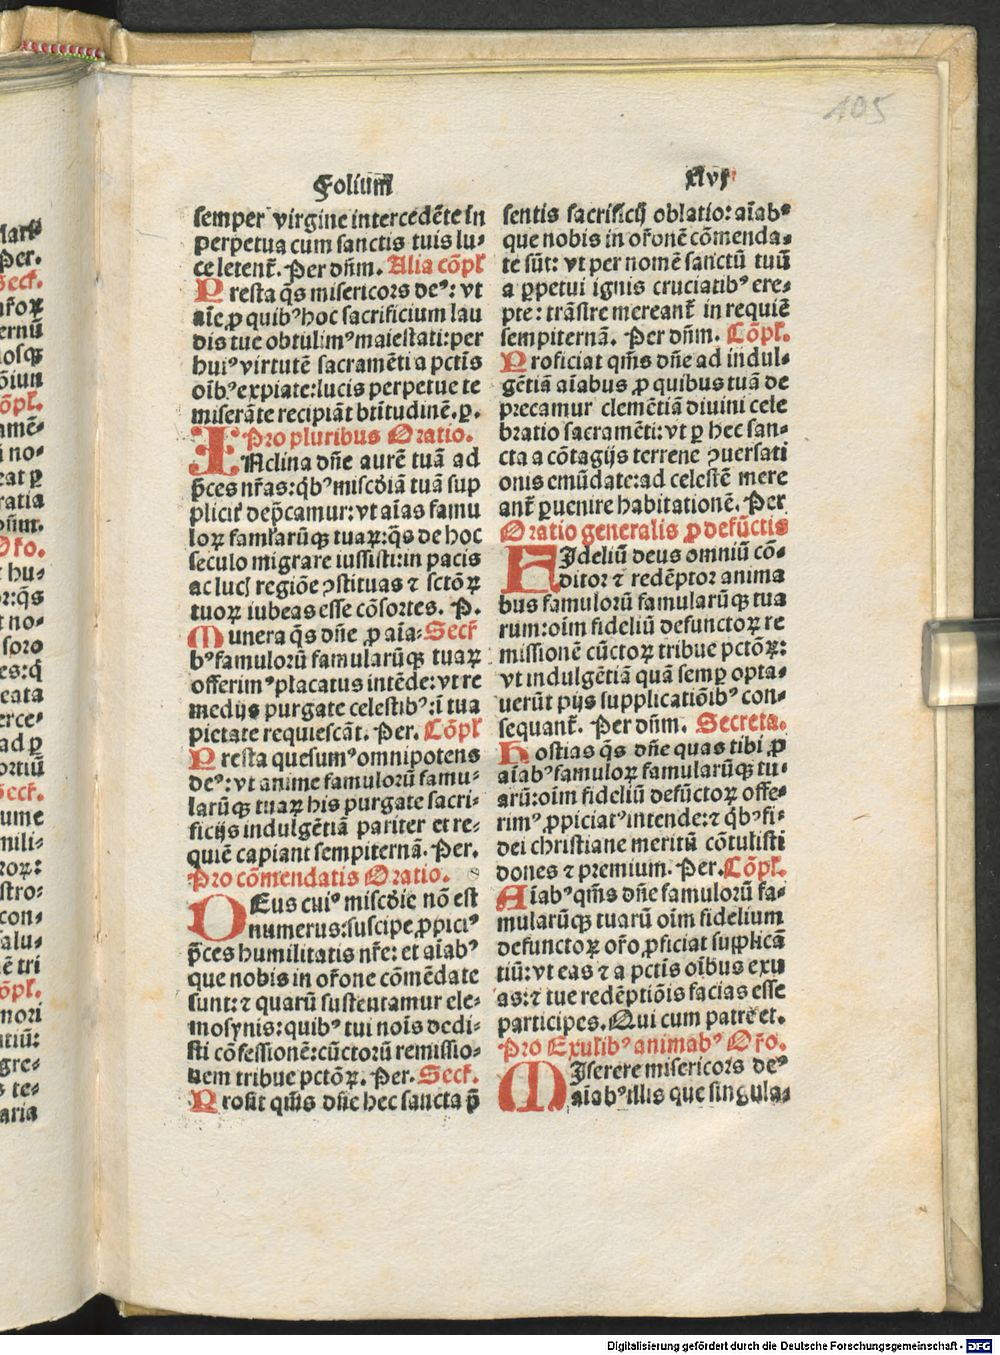 105
Folium xlvj
semper virgine intercedēte in
perpetua cum sanctis tuis lu⸗
ce letenť. Per dñm. Alia cōpľ
Presta q̄s misericors deꝰ: vt
aīe ꝓ quibꝰ hoc sacrificium lau
dis tue obtulimꝰ maiestati: per
huiꝰ virtutē sacramēti a pctīs
oībꝰ expiate: lucis perpetue te
miserāte recipiāt btītudinē. ꝑ.
Pro pluribus Oratio.
INclina dñe aurē tuā ad
p̄ces nr̄as: qͥbꝰ misc̄diā tuā sup
pliciť dep̄camur: vt aīas famu
loꝝ famlarūqꝫ tuaꝝ: q̄s de hoc
seculo migrare iussisti: in pacis
ac lucꝭ regiōe ꝯstituas ⁊ sctōꝝ
tuoꝝ iubeas esse cōsortes. P.
Munera q̄s dñe ꝓ aīa⸗ Secř
bꝰ famulorū famularūqꝫ tuaꝝ
offerimꝰ placatus intēde: vt re
medijs purgate celestibꝰ: ī tua
pietate requiescāt. Per. Cōpľ
Presta quesumꝰ omnipotens
deꝰ: vt anime famulorū famu⸗
larūqꝫ tuaꝝ his purgate sacri⸗
ficijs indulgētiā pariter et re⸗
quiē capiant sempiternā. Per.
Pro cōmendatis Oratio.
DEus cuiꝰ misc̄die nō est
numerus: suscipe ꝓpiciꝰ
p̄ces humilitatis nr̄e: et aīabꝰ
que nobis in or̄one cōmēdate
sunt: ⁊ quarū sustentamur ele⸗
mosynis: quibꝰ tui noīs dedi⸗
sti cōfessionē: cūctorū remissio⸗
nem tribue pctōꝝ. Per. Secř.
Prosit qm̄s dñe hec sancta p̄
sentis sacrificij oblatio: aīabꝰ
que nobis in or̄onē cōmenda⸗
te sūt: vt per nomē sanctū tuū
a ꝑpetui ignis cruciatibꝰ ere⸗
pte: trāsire mereanť in requiē
sempiternā. Per dñm. Cōpľ.
Proficiat qm̄s dñe ad indul⸗
gētiā aīabus ꝓ quibus tuā de
precamur clemētiā diuini cele
bratio sacramēti: vt ꝑ hec san⸗
cta a cōtagijs terrene ꝯuersati
onis emūdate: ad celestē mere
anť ꝑuenire habitationē. Per
Oratio generalis ꝓ defūctis
FIdeliū deus omniū cō⸗
ditor ⁊ redēptor anima
bus famulorū famularūqꝫ tua
rum: oīm fideliū defunctoꝝ re
missionē cūctoꝝ tribue pctōꝝ:
vt indulgētiā quā semꝑ opta⸗
uerūt pijs supplicatiōibꝰ con⸗
sequanť. Per dñm. Secreta.
Hostias q̄s dñe quas tibi ꝓ
aīabꝰ famuloꝝ famularūqꝫ tu⸗
arū: oīm fideliū defūctoꝝ offe⸗
rimꝰ ꝓpiciatꝰ intende: ⁊ qͥbꝰ fi⸗
dei christiane meritū cōtulisti
dones ⁊ premium. Per. Cōpľ.
Aīabꝰ qm̄s dñe famulorū fa⸗
mularūqꝫ tuarū oīm fidelium
defunctoꝝ or̄o ꝓficiat supplicā
tiū: vt eas ⁊ a pctīs oībus exu
as: ⁊ tue redēptiōis facias esse
participes. Qui cum patre et.
Pro Exulibꝰ animabꝰ Or̄o.
MIserere misericors deꝰ
aīabꝰ illis que singula⸗
Digitalisierung gefördert durch die Deutsche Forschungsgemeinschaft - DFG